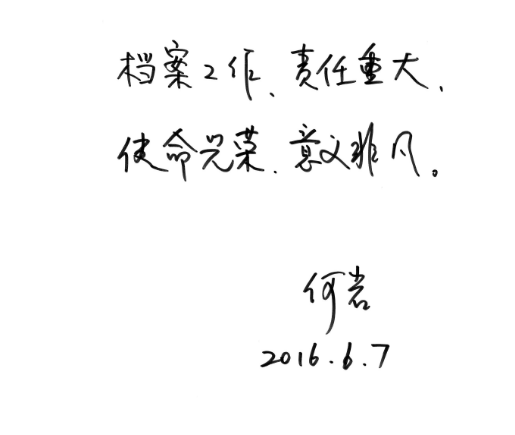 档案工作、责任重大、
使命光荣、意义非凡。
何岩
2016.6.7